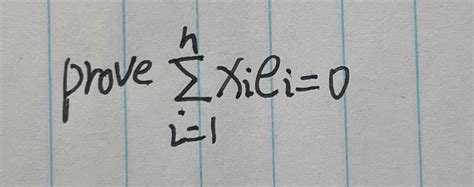 prove \sum_{i=1}^{n} x_i e_i = 0